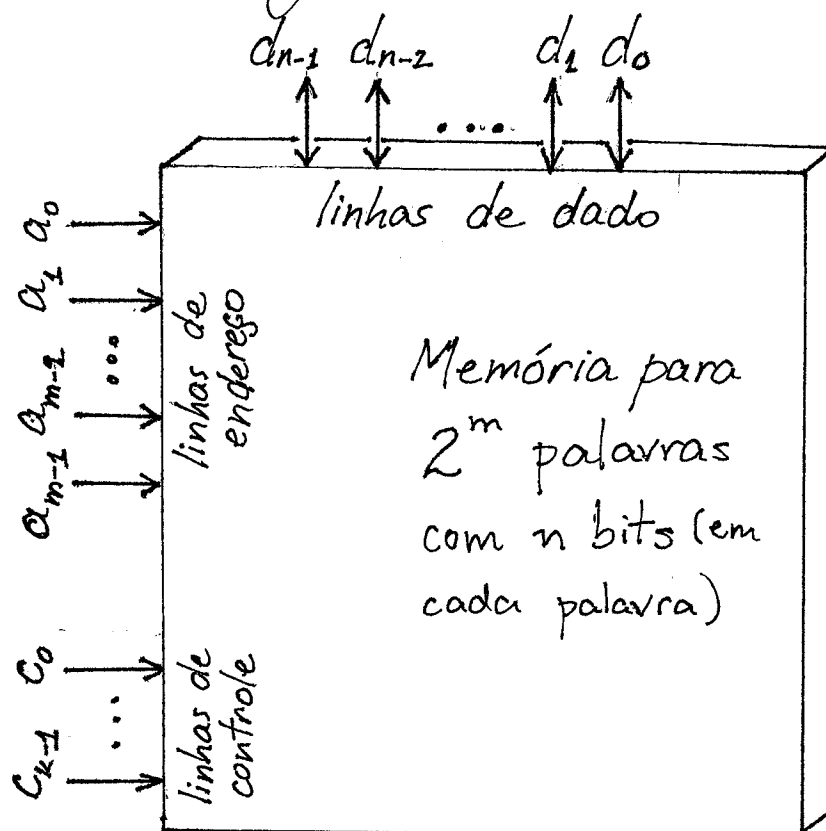 dₙ₋₁ dₙ₋₂ d₁ d₀
...
linhas de dado
a₀
a₁
...
aₘ₋₂
aₘ₋₁
linhas de
endereço
Memória para
2ᵐ palavras
com n bits (em
cada palavra)
c₀
...
cₖ₋₁
linhas de
controle